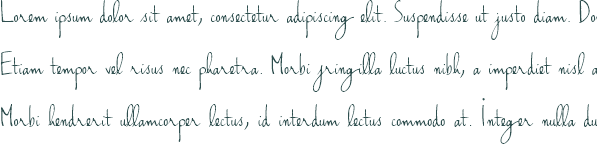 Lorem ipsum dolor sit amet, consectetur adipiscing elit. Suspendisse ut justo diam. Do
Etiam tempor vel risus nec pharetra. Morbi fringilla luctus nibh, a imperdiet nisl a
Morbi hendrerit ullamcorper lectus, id interdum lectus commodo at. Integer nulla du